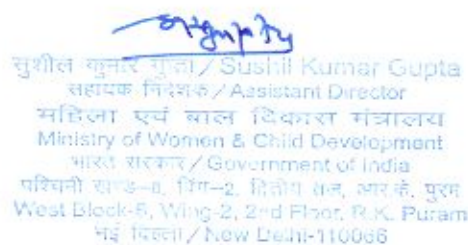 सुशील कुमार गुप्ता / Sushil Kumar Gupta
सहायक निदेशक / Assistant Director
महिला एवं बाल विकास मंत्रालय
Ministry of Women & Child Development
भारत सरकार / Government of India
पश्चिमी खण्ड-8, विंग-2, द्वितीय तल, आर.के. पुरम
West Block-8, Wing-2, 2nd Floor, R.K. Puram
नई दिल्ली / New Delhi-110066